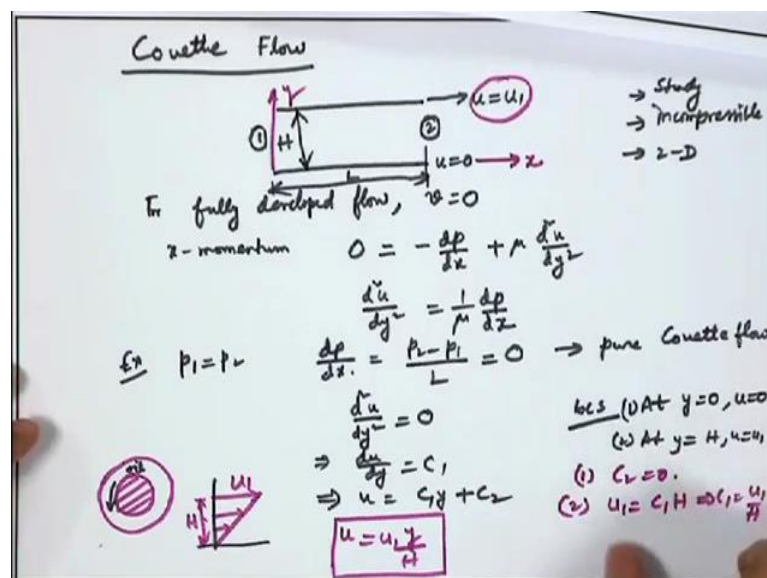 Couette Flow
Y
u=u₁
① H ②
u=0 → x
L
→ Steady
→ incompressible
→ 2-D
For fully developed flow, v=0
x-momentum 0 = - dp/dx + μ d²u/dy²
d²u/dy² = 1/μ dp/dx
Ex p₁=p₂ dp/dx = (p₂-p₁)/L = 0 → pure Couette flow
d²u/dy² = 0
⇒ du/dy = C₁
⇒ u = C₁y + C₂
u = u₁ y/H
bcs (1) At y=0, u=0
(2) At y=H, u=u₁
(1) C₂=0.
(2) u₁ = C₁H ⇒ C₁ = u₁/H
oil
u₁
H